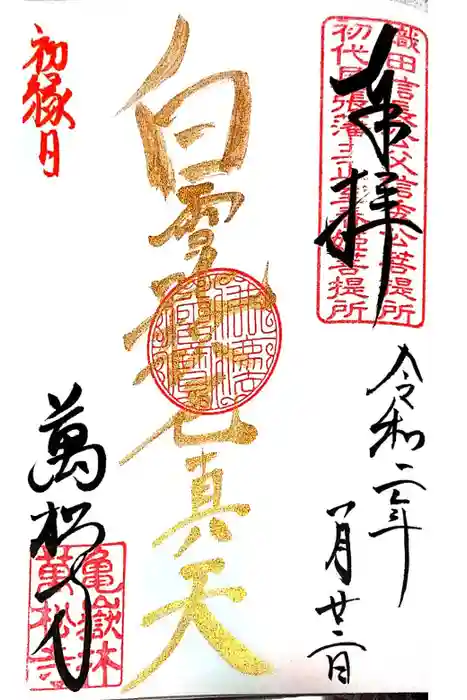 織田信長公父信秀公菩提所
初代尾張藩主正室春姫菩提所
奉拝
令和二年
一月廿二日
白雪吒枳尼真天
初縁日
萬松寺
龜嶽林
萬松寺